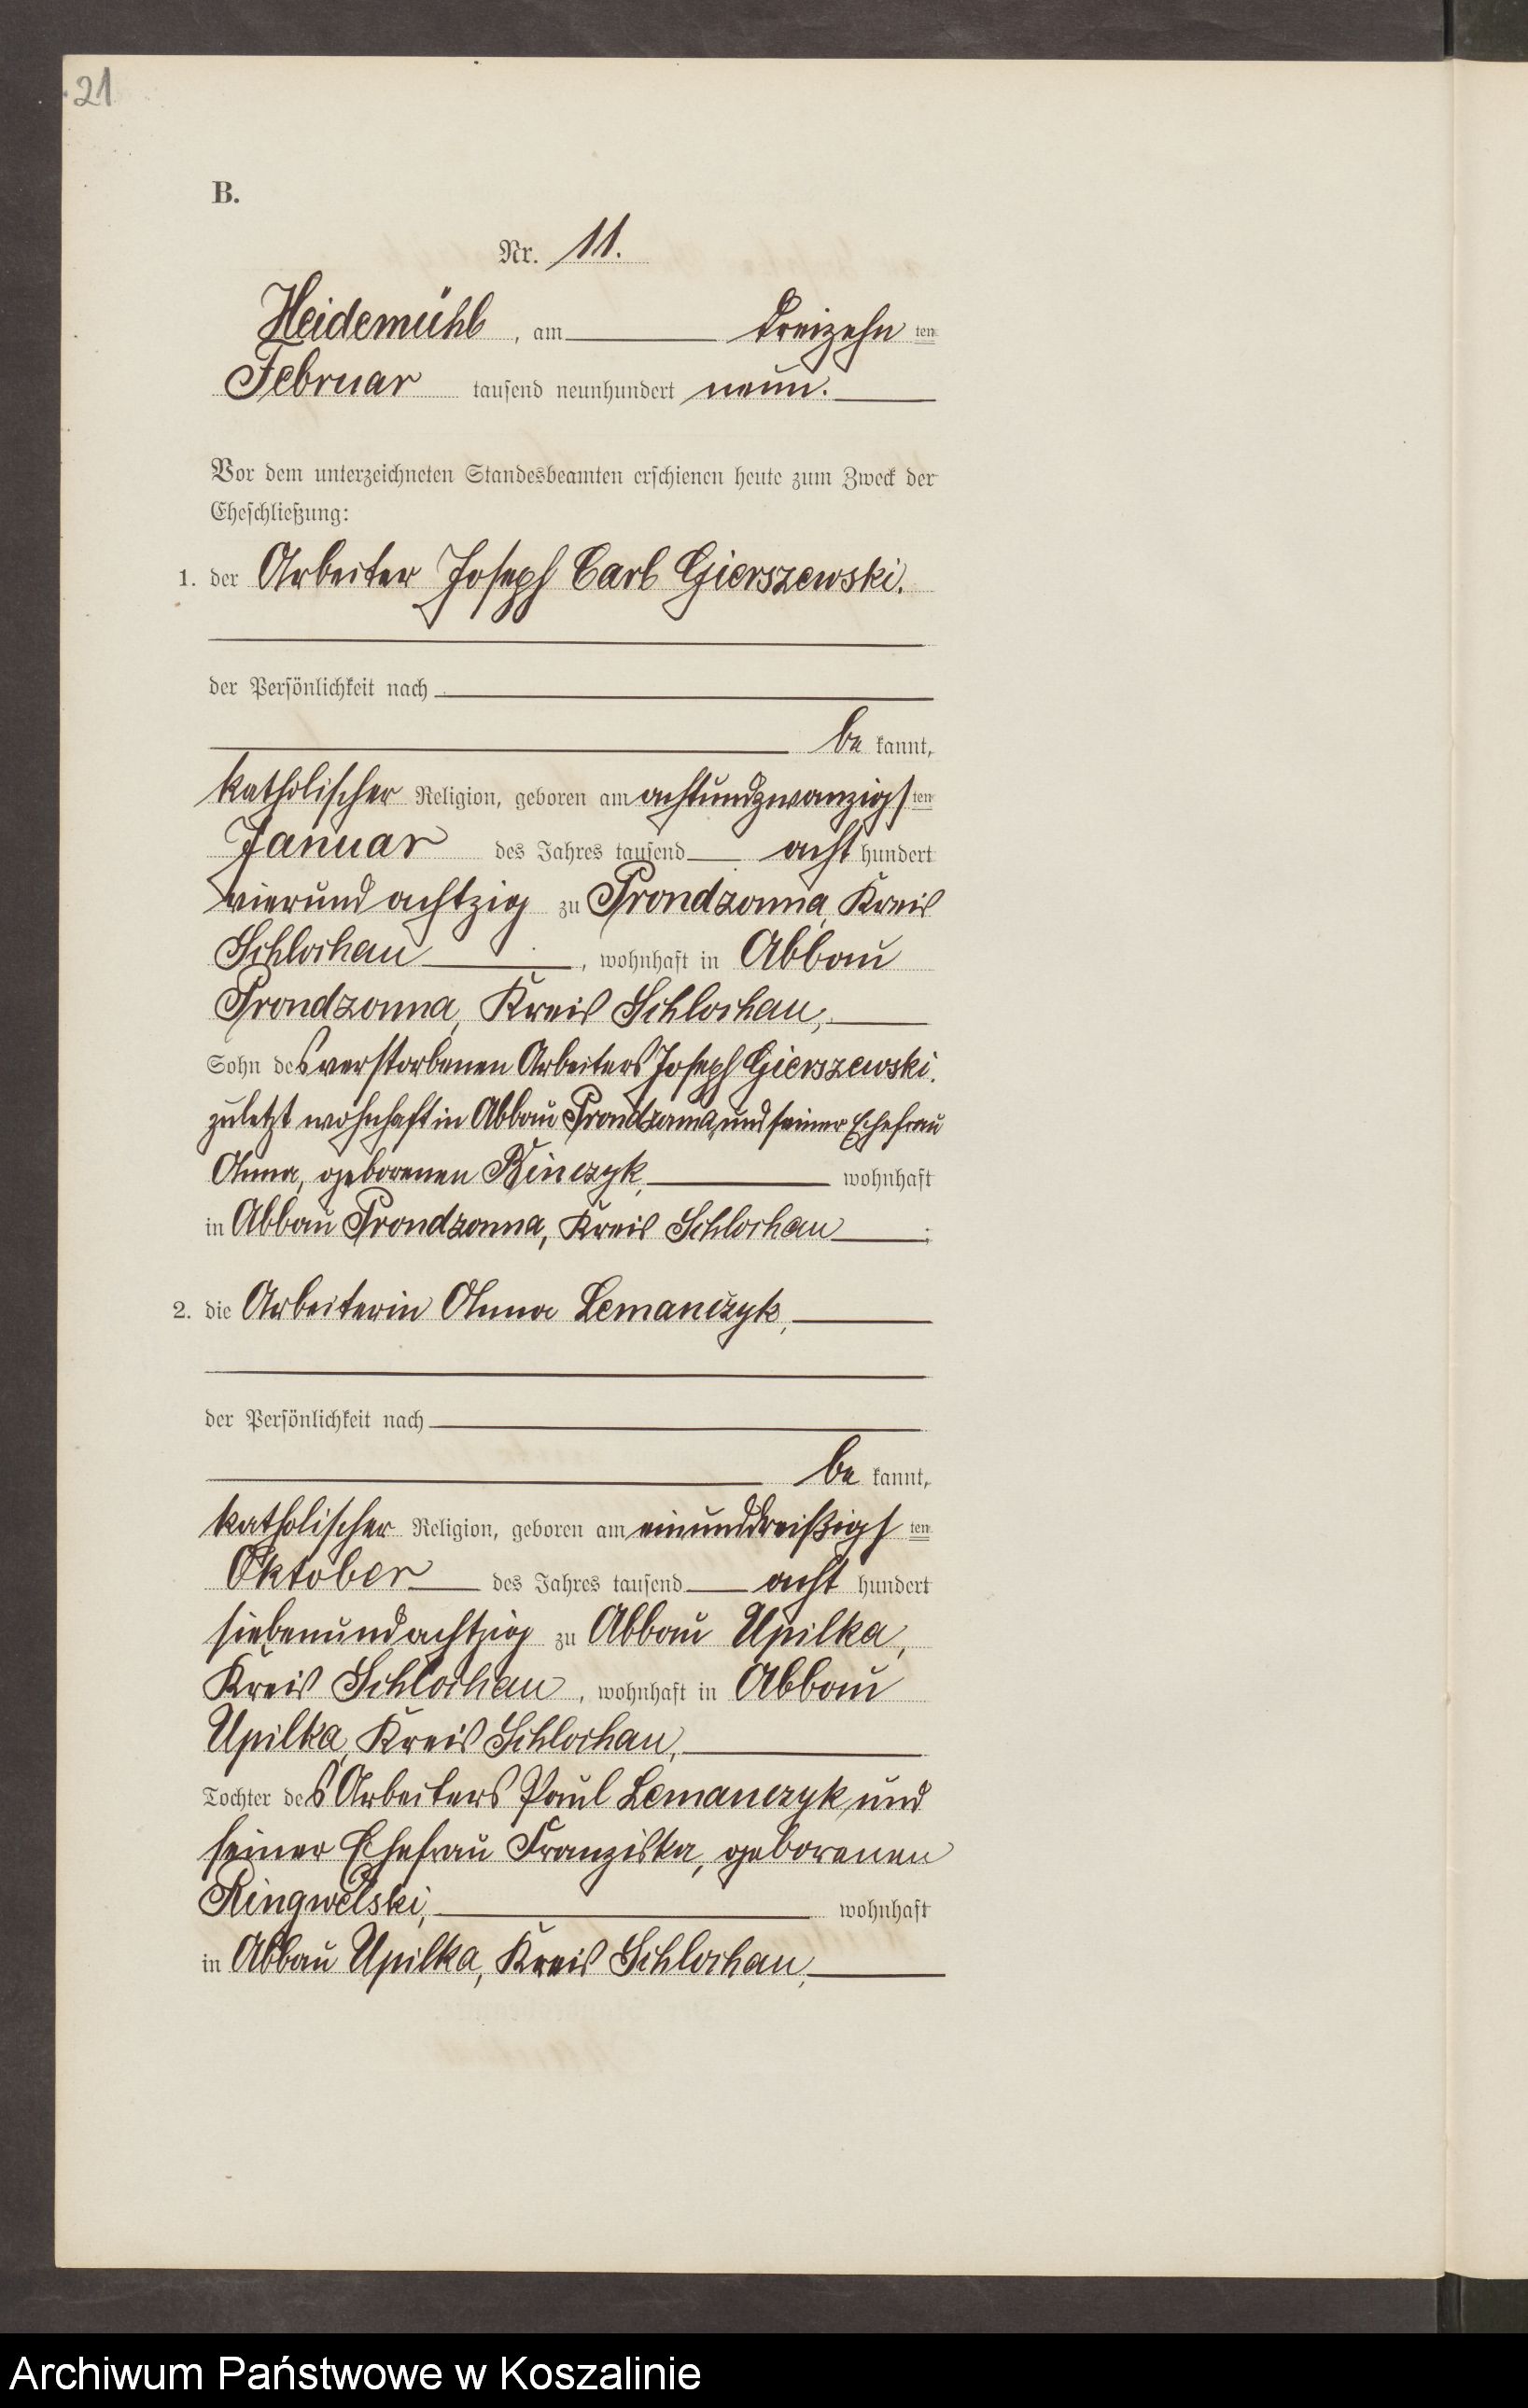 21
B.
Nr. 11.
Heidemühl, am dreizehn ten
Februar tausend neunhundert neun.
Vor dem unterzeichneten Standesbeamten erschienen heute zum Zweck der
Eheschließung:
1. der Arbeiter Joseph Carl Gierszewski.
der Persönlichkeit nach
be kannt,
katholischer Religion, geboren am achtundzwanzigs ten
Januar des Jahres tausend acht hundert
vierundachtzig zu Prondzonna, Kreis
Schlochau, wohnhaft in Abbau
Prondzonna, Kreis Schlochau,
Sohn des verstorbenen Arbeiters Joseph Gierszewski.
zuletzt wohnhaft in Abbau Prondzonna, und seiner Ehefrau
Anna, geborenen Binczyk, wohnhaft
in Abbau Prondzonna, Kreis Schlochau;
2. die Arbeiterin Anna Lemanczyk,
der Persönlichkeit nach
be kannt,
katholischer Religion, geboren am einunddreißigs ten
Oktober des Jahres tausend acht hundert
siebenundachtzig zu Abbau Upilka,
Kreis Schlochau, wohnhaft in Abbau
Upilka, Kreis Schlochau,
Tochter des Arbeiters Paul Lemanczyk und
seiner Ehefrau Franziska, geborenen
Ringwelski, wohnhaft
in Abbau Upilka, Kreis Schlochau,
Archiwum Państwowe w Koszalinie